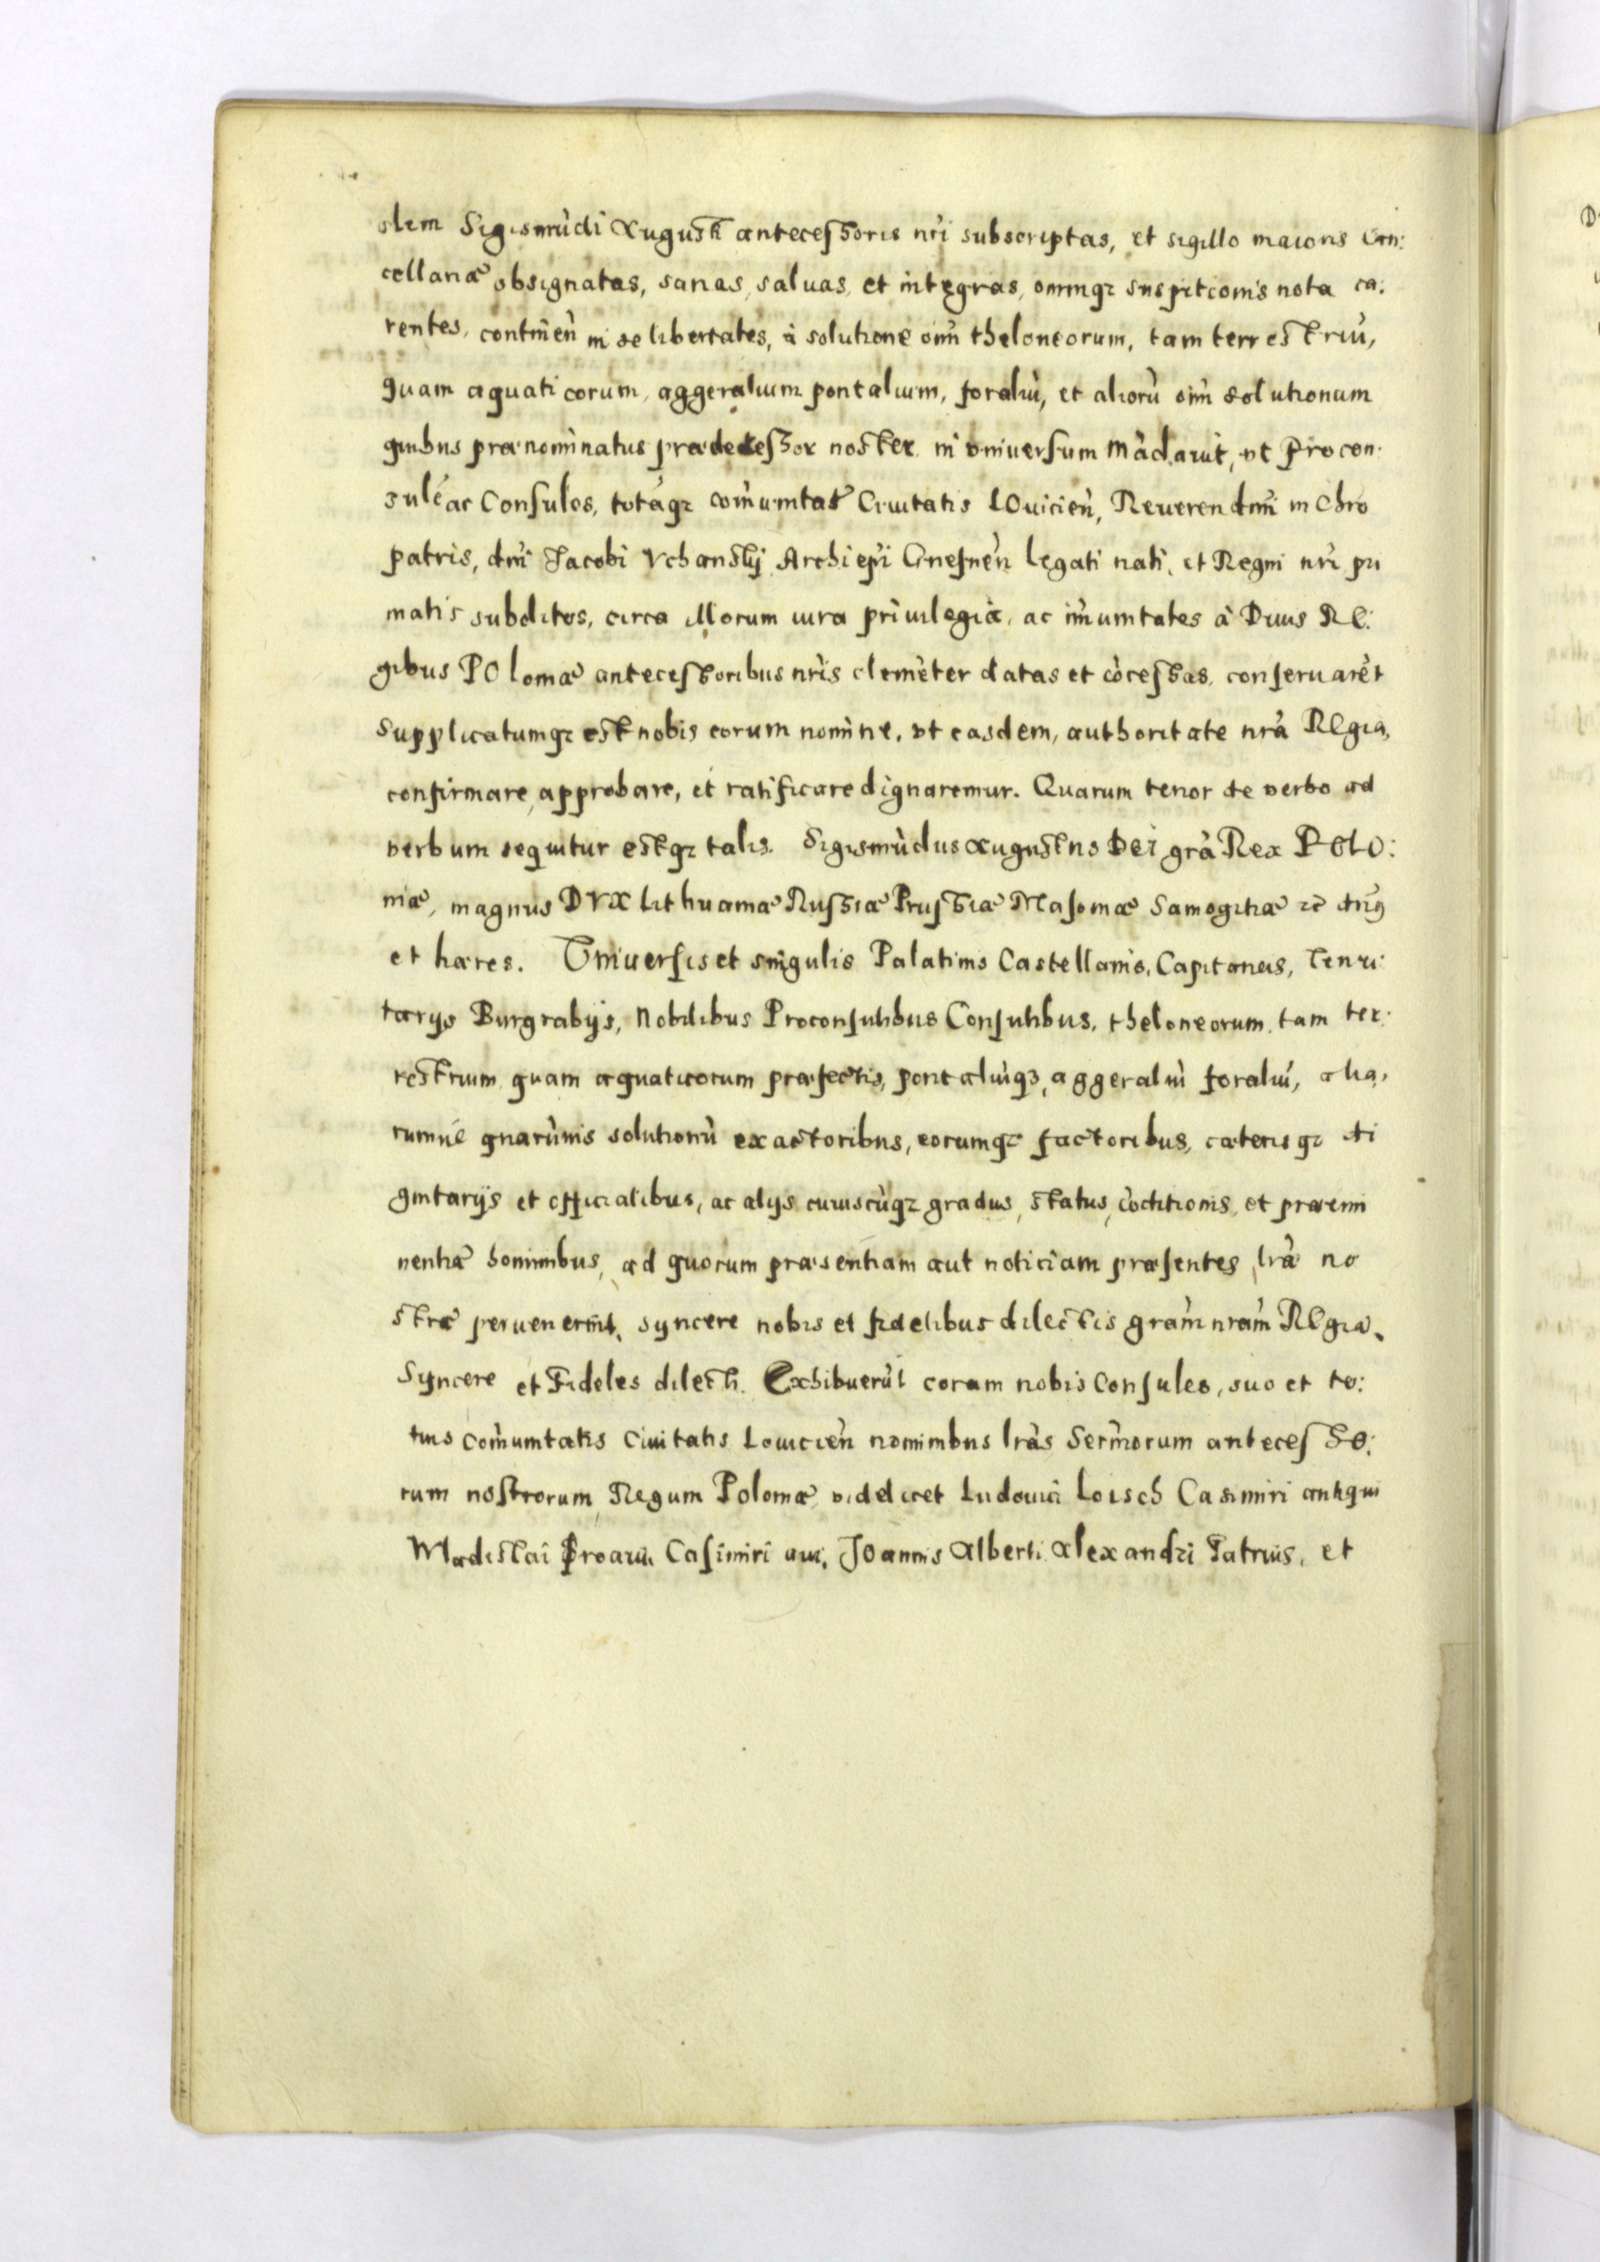 dem Sigismũdi Augusti antecessoris nri subscriptas, et sigillo maioris Can:
cellariæ obsignatas, sanas, saluas, et integras, omniqz suspitionis nota ca:
rentes, continẽn in se libertates, à solutione oĩm theloneorum, tam terrestriũ,
quam aquaticorum, aggeralium pontalium, foraliũ, et aliorũ oĩm solutionum
quibus prænominatus prædecessor noster in vniuersum mãdauit, vt Procon:
sulẽ ac Consules, totãqz com̃unitatẽ Ciuitatis LOuicien̄, Reuerendmi in Chro
patris, dni Jacobi Vchansky Archiepi Gnesnen̄ legati nati, et Regni nri pri
matis subditos, circa illorum iura priuilegia, ac im̃unitates à Diuis RE:
gibus POloniæ antecessoribus nris clemẽter datas et cõcessas, conseruarẽt
Supplicatumqz est nobis eorum nomine, vt easdem, authoritate nrã REgia,
confirmare, approbare, et ratificare dignaremur. Quarum tenor de verbo ad
verbum sequitur estqz talis. Sigismũdus Augustus Dei grã Rex POLO:
niæ, magnus DVX Lithuaniæ Russiæ Prussiæ Masoniæ Samogitiæ zc dñs
et hæres. Vniuersis et singulis Palatinis Castellanis, Capitaneis, Tenu:
tarijs Burgrabijs, Nobilibus Proconsulibus Consulibus, theloneorum, tam ter:
restrium quam aquaticorum præfectis, pontaliũqz, aggeraliũ foraliũ, alia,
rumuẽ quarũuis solutionũ exactoribus, eorumqz factoribus, cæterisqz di
gnitarijs et officialibus, ac alijs cuiuscũqz gradus, status, cõditionis, et præemi
nentiæ hominibus, ad quorum præsentiam aut noticiam præsentes lrã no
stræ peruenerint, syncere nobis et fidelibus dilectis grãm nrãm REgia.
Syncere et Fideles dilecti. Exhibuerũt coram nobis Consules, suo et to:
tius com̃unitatis Ciuitatis Louicien̄ nominibus lrãs Serm̃orum antecesso:
rum nostrorum Regum Poloniæ videlicet Ludouici Loisch Casimiri antiqui
Wladislai Proaui, Casimiri aui, JOannis Alberti Alexandri Patruis, et